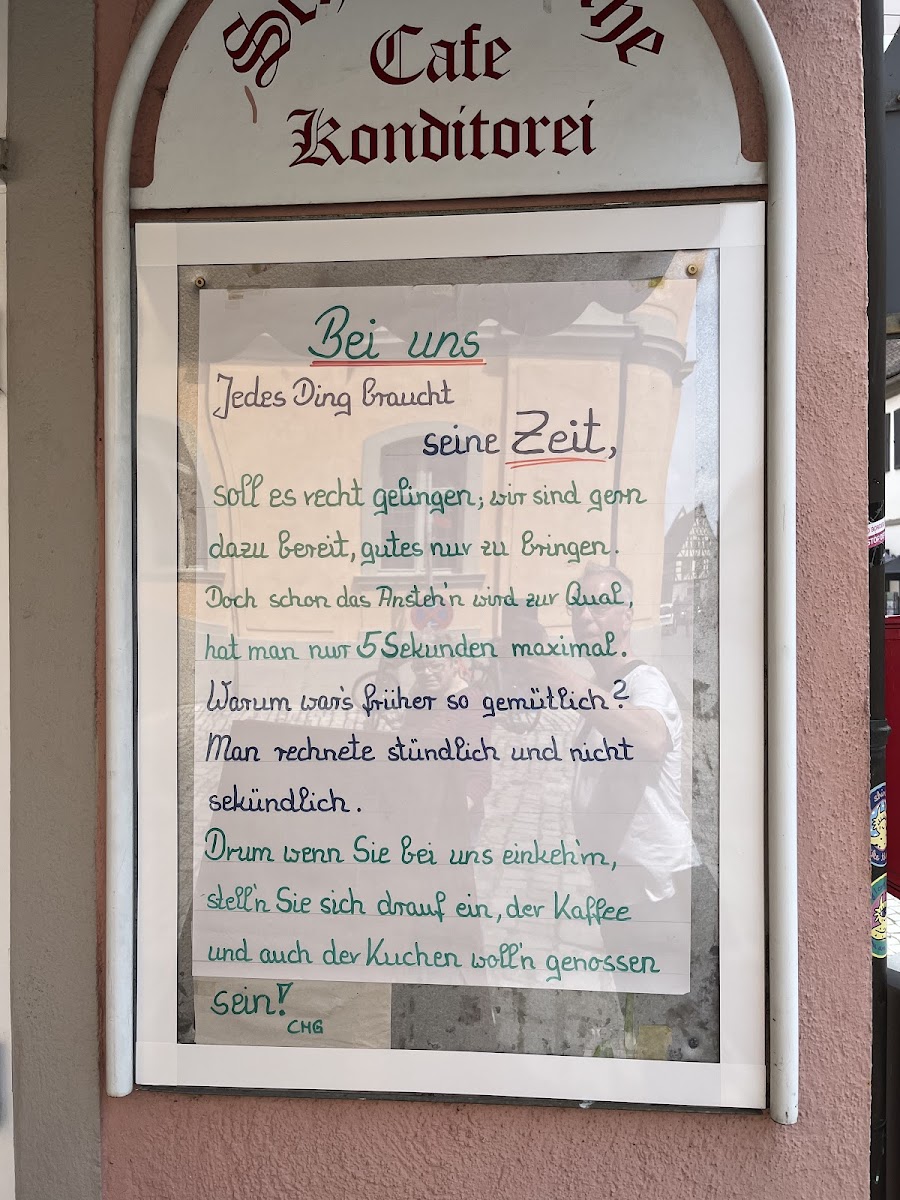 Cafe
Konditorei
Bei uns
Jedes Ding braucht
seine Zeit,
soll es recht gelingen; wir sind gern
dazu bereit, gutes nur zu bringen.
Doch schon das Ansteh'n wird zur Qual,
hat man nur 5 Sekunden maximal.
Warum war's früher so gemütlich?
Man rechnete stündlich und nicht
sekündlich.
Drum wenn Sie bei uns einkehr'n,
stell'n Sie sich drauf ein, der Kaffee
und auch der Kuchen woll'n genossen
sein!
CHG